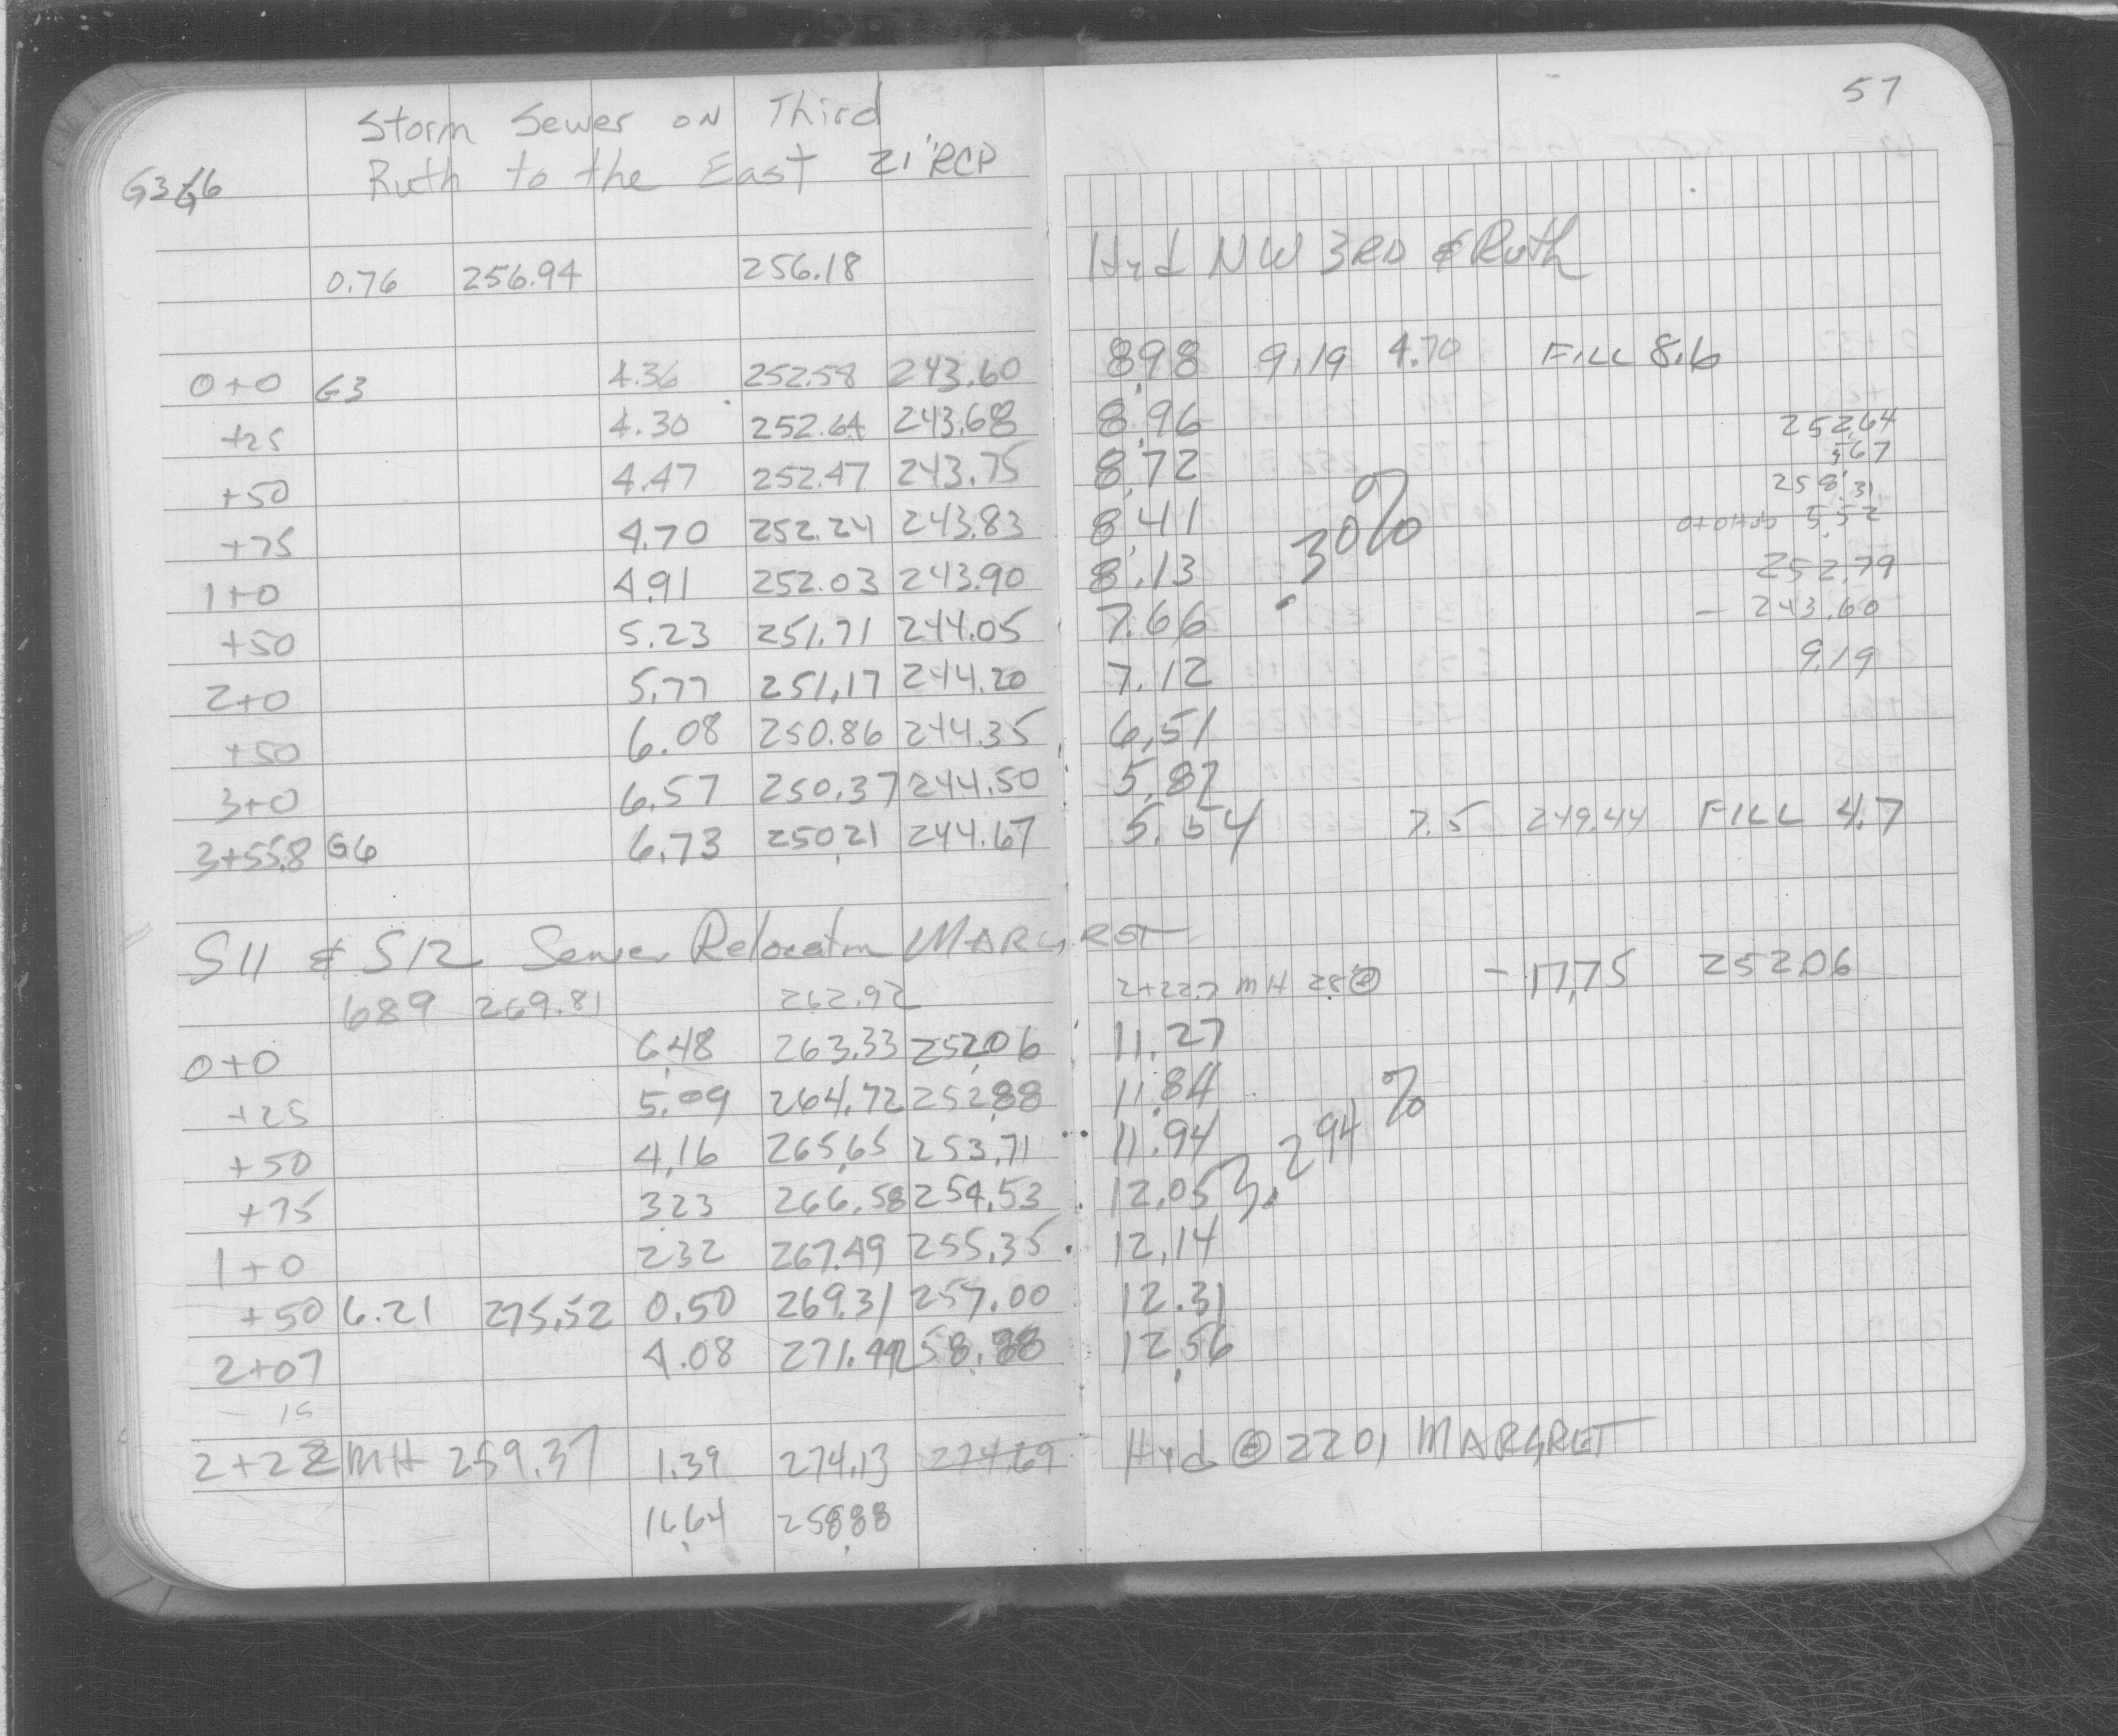 57
Storm Sewer on Third
G3 G6 Ruth to the East 21" RCP
0.76 256.94 256.18 Hyd NW 3RD & Ruth
0+0 G3 4.36 252.58 243.60 8.98 9.19 4.70 FILL 8.6
+25 4.30 252.64 243.68 8.96 252.64
5.67
+50 4.47 252.47 243.75 8.72 258.31
+75 4.70 252.24 243.83 8.41 .30% 0+0 Hub 5.52
1+0 4.91 252.03 243.90 8.13 252.79
+50 5.23 251.71 244.05 7.66 - 243.60
2+0 5.77 251.17 244.20 7.12 9.19
+50 6.08 250.86 244.35 6.51
3+0 6.57 250.37 244.50 5.87
3+55.8 G6 6.73 250.21 244.67 5.54 7.5 249.44 FILL 4.7
S11 & S12 Sewer Relocatn MARGRET
689 269.81 262.92 2+22.7 MH - 17.75 252.06
0+0 6.48 263.33 252.06 11.27
+25 5.09 264.72 252.88 11.84
+50 4.16 265.65 253.71 11.94 3.294%
+75 3.23 266.58 254.53 12.05
1+0 2.32 267.49 255.35 12.14
+50 6.21 275.52 0.50 269.31 257.00 12.31
2+07 4.08 271.44 258.88 12.56
15
2+22 MH 259.37 1.39 274.13 274.69 Hyd @ 2201 MARGRET
16.64 258.88